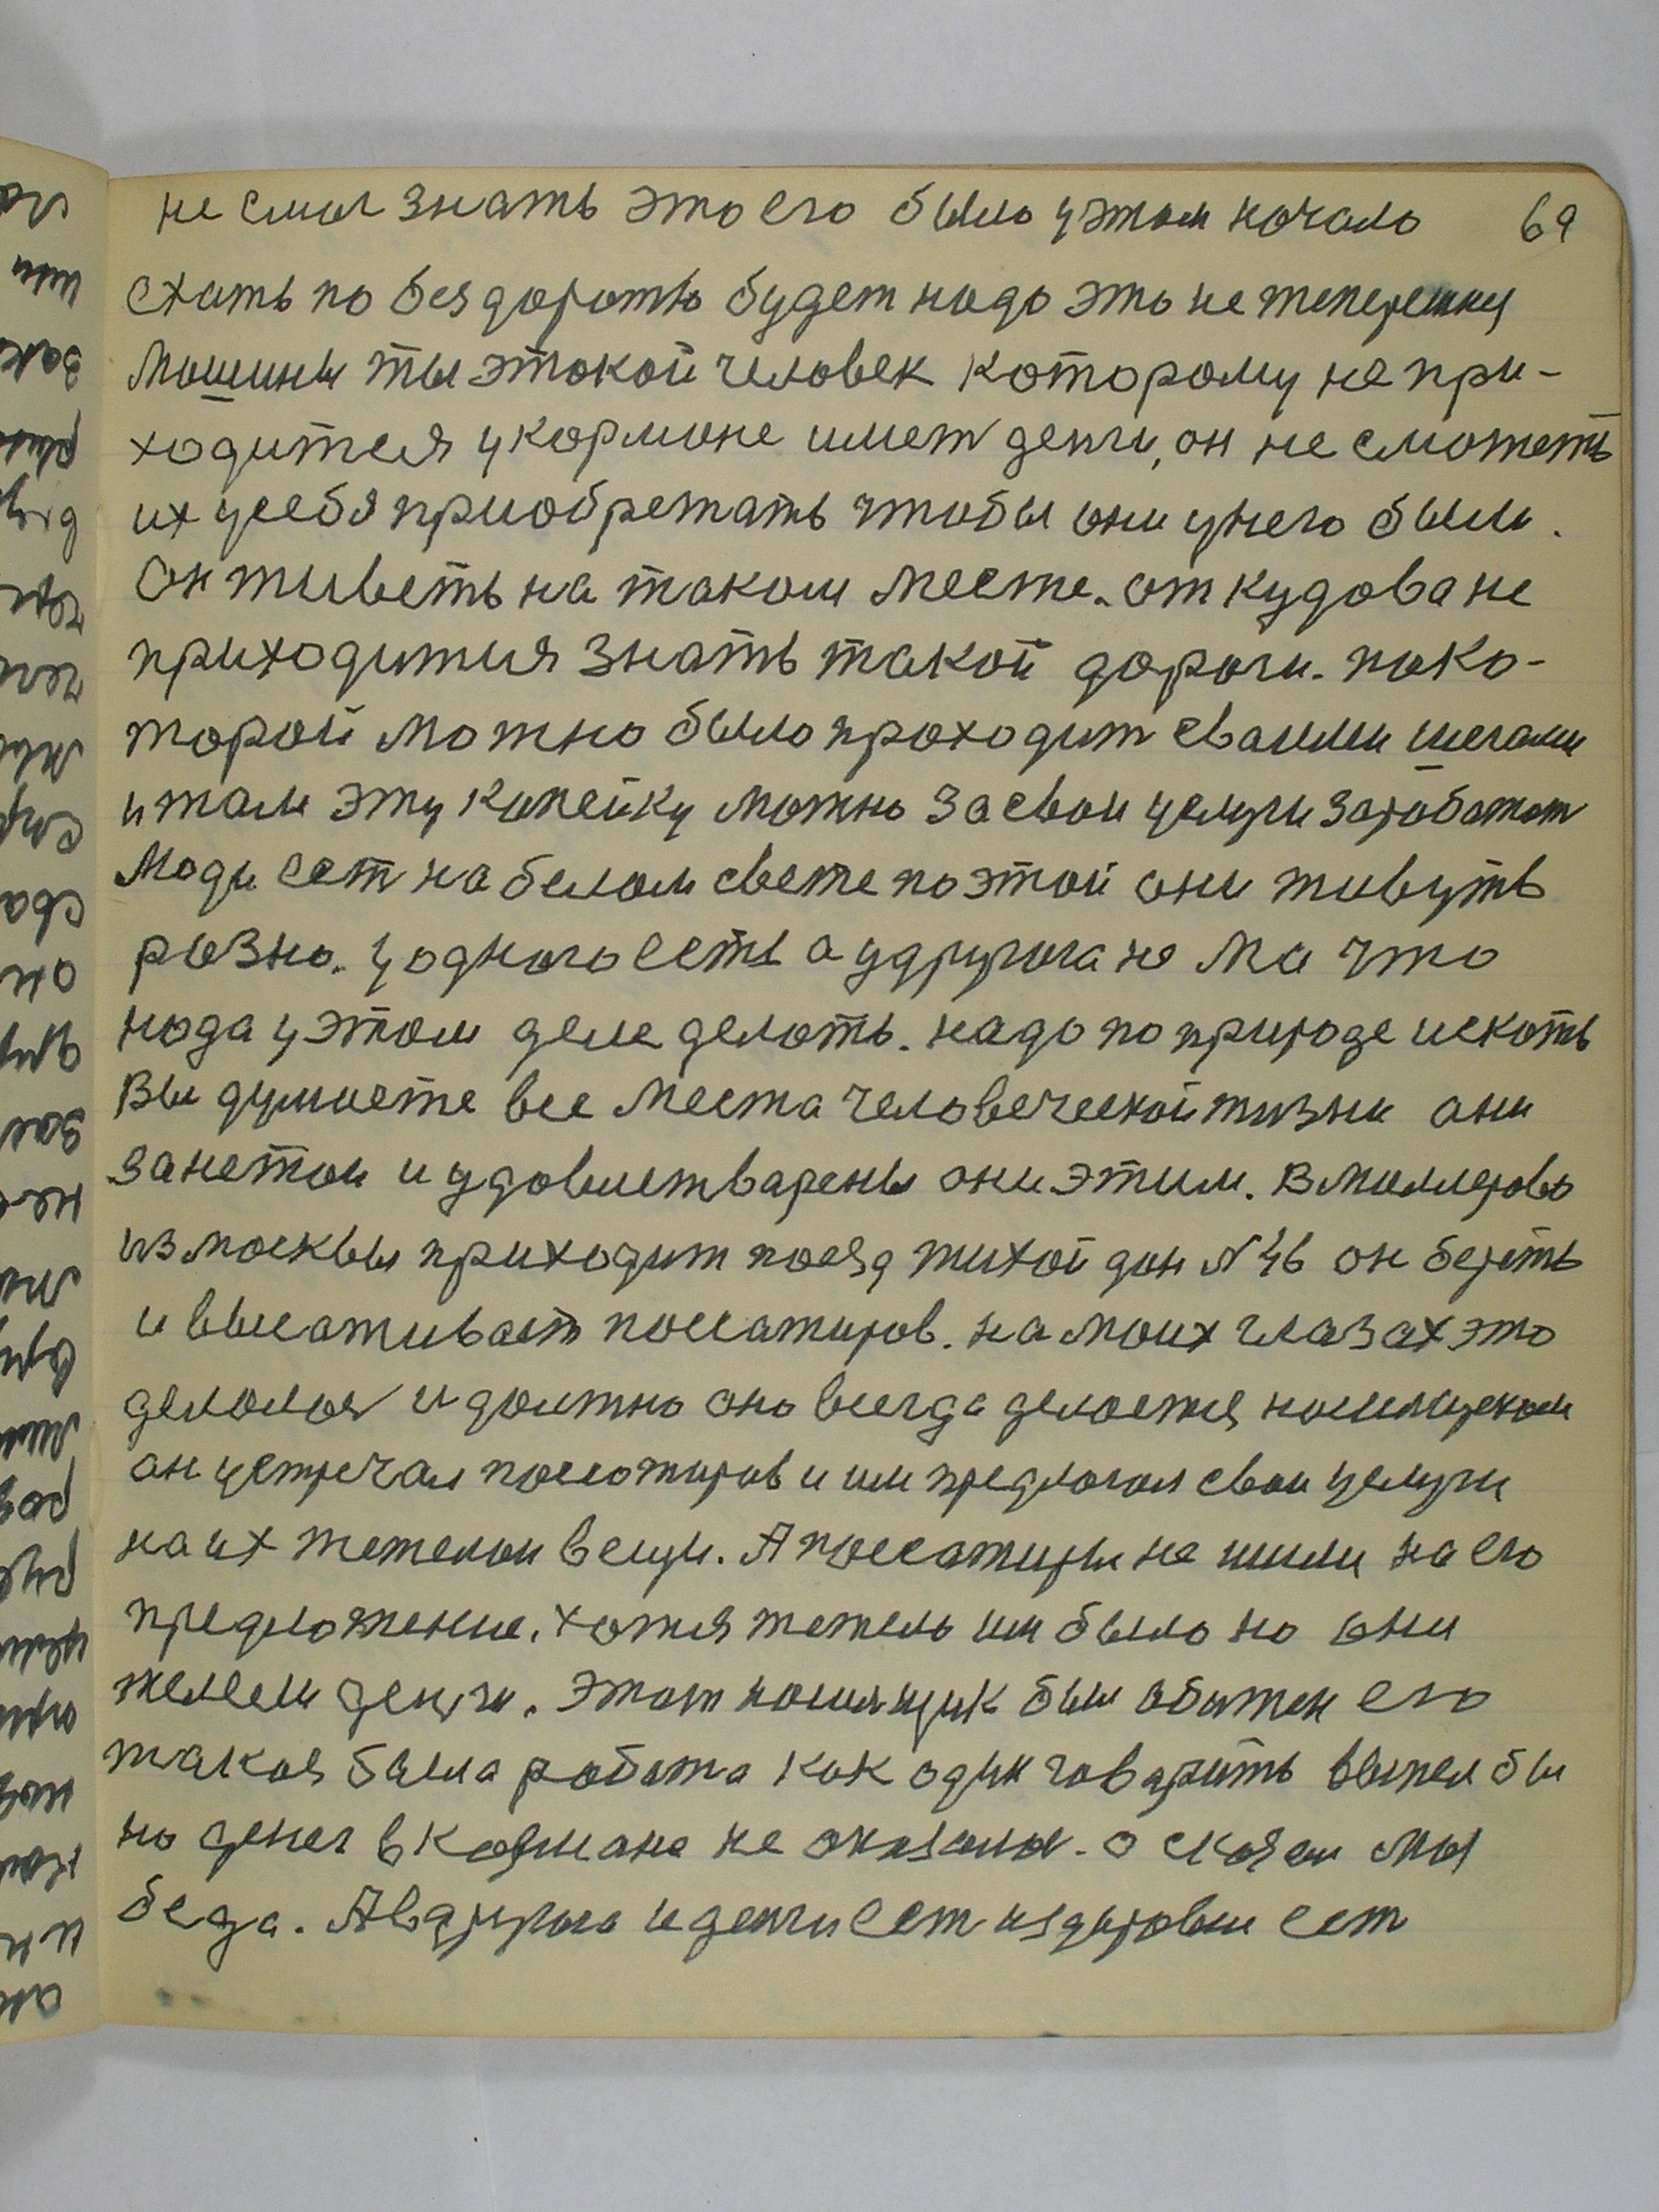 не смог знать это его было у этом начало 69
ехать по бездорожью будет надо это не теперешняя
Машины ты этокой человек которому не при-
ходится у кормане имет денги, он не сможеть
их у себя приобретать чтобы они у него были.
Он живеть на таком месте. откудова не
приходится знать такой дороги. пако-
торой можно было проходит сваими шегами
и там эту капейку можно за свои услуги зароботат
Люди ест на белом свете по этой они живуть
разно. у одного есть а у другога не Ма что
нада у этом деле делоть. надо по природе искоть
Вы думаете все места человеческой жизни ани
занетои и удовлетварены они этим. В Миллерово
из москвы приходит поезд тихой дон №46 он береть
и высаживает пассажиров. на моих глазах это
делолоя и должно оно всегда делоется носильщиком
он устречал пассожиров и им предлогол свои услуги
на их тежелои вещи. А пассажиры не шли на его
предложение. хотя тежело им было но они
желели денги. Этот носильщик был обижен его
такоя была робота как один говорить выпел бы
но денег в кормане не оказалоя. о скажем мы
беда. А в другога и денги ест и здуровие ест